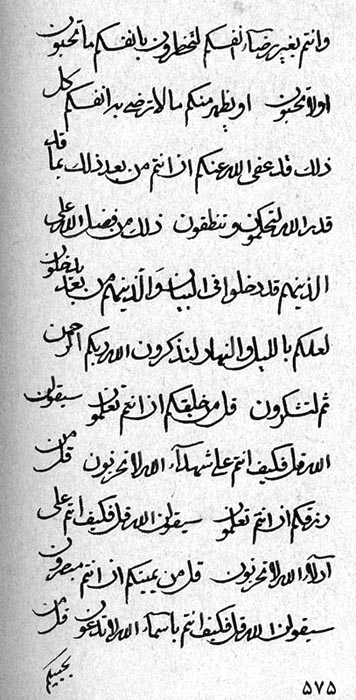 وانتم بغير رضاء انفسكم لتخطرون بانفسكم ما تحبون
او لا تحبون او يظهر منكم ما لا ترضى به انفسكم كل
ذلك قد عفى الله عنكم ان انتم من بعد ذلك بما قد
قدر الله لتحكمون وتنطقون ذلك من فضل الله على
الذينهم قد دخلوا فى البيان والذينهم من بعد يدخلون
لعلكم بالليل والنهار لتذكرون الله ربكم الرحمن
ثم لتشكرون قل من خلقكم ان انتم تعلمون سيقولون
الله قل فكيف انتم على شهداء الله لا تحزنون قل من
رزقكم ان انتم تعلمون سيقولن الله قل فكيف انتم على
ادلاء الله لا تحزنون قل من يميتكم ان انتم مبصرون
سيقولن الله قل فكيف انتم باسماء الله لا تدعون قل من
يحييكم
٥٧٥